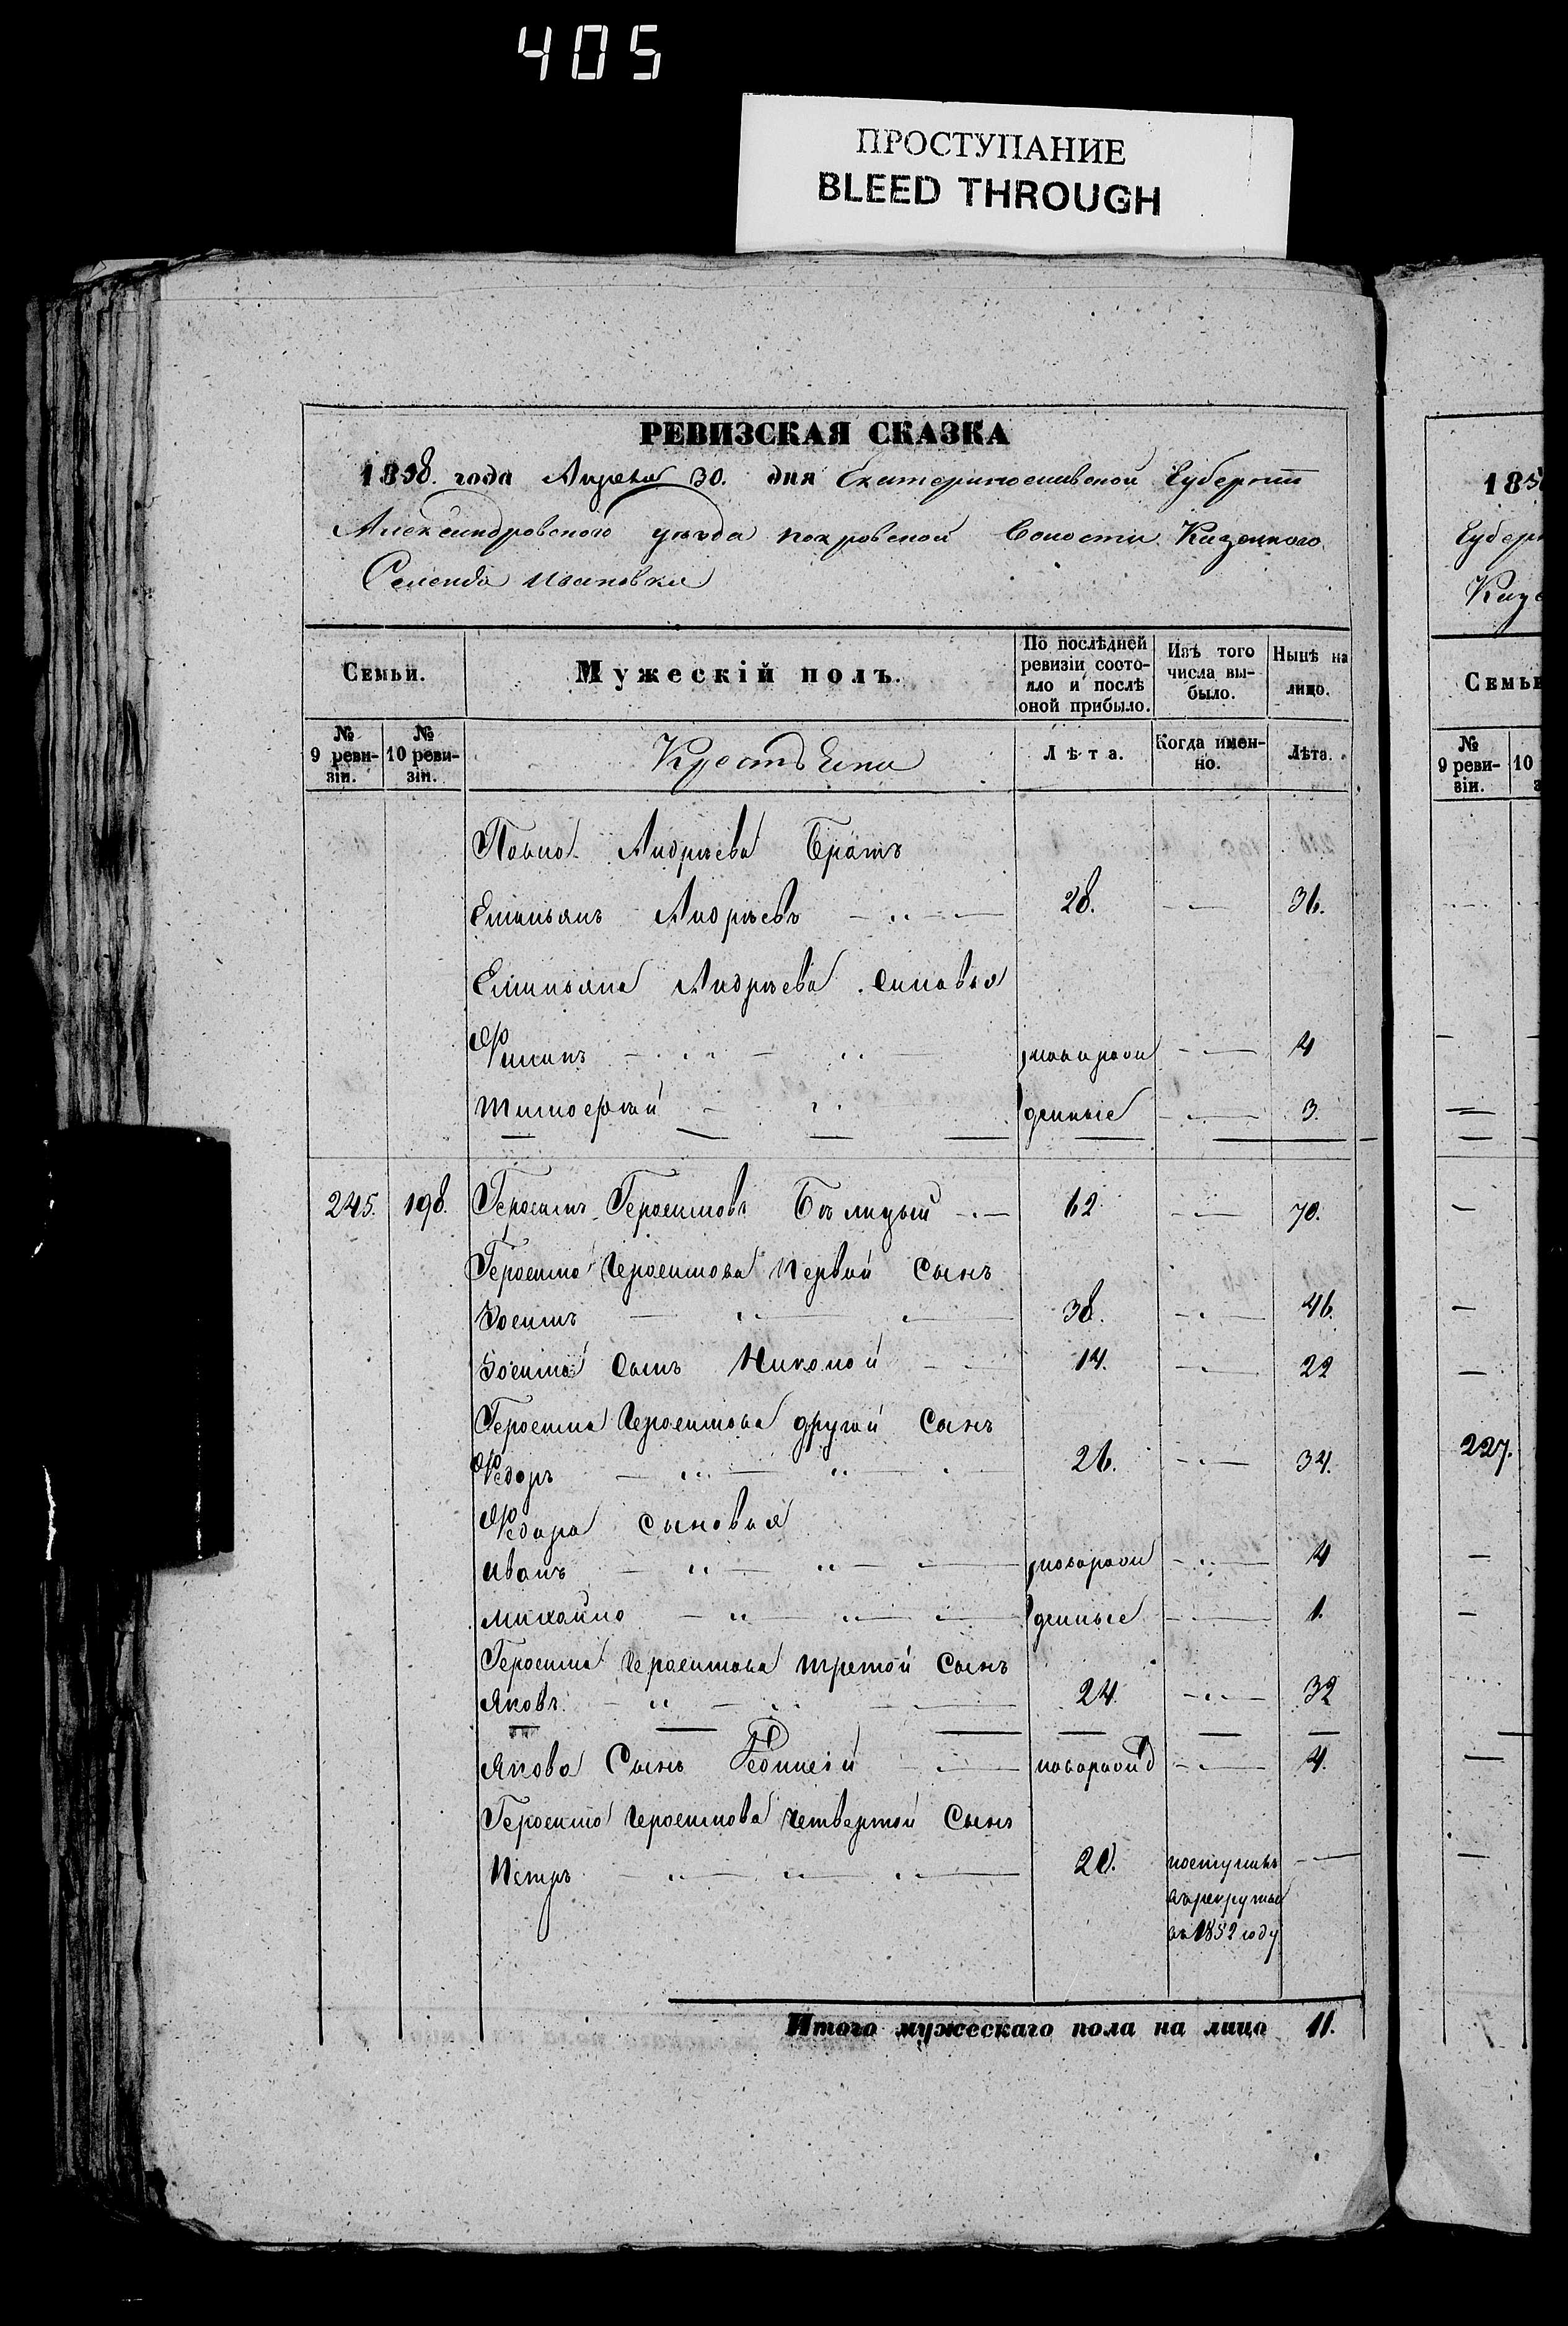 405
ПРОСТУПАНИЕ
BLEED THROUGH
РЕВИЗСКАЯ СКАЗКА
1858. года Апреля 30. дня Екатеринославской Губернии
Александровского уезда покровской Волости Казенного
Селенда Ивановки
Семьи. Мужескій полъ. По послѣдней ревизіи состояло и послѣ оной прибыло. Изъ того числа выбыло. Нынѣ на лицо.
№ 9 ревизіи. № 10 ревизіи. Крестьяни Лѣта. Когда именно. Лѣта.
Андрѣева Братъ
Емильянъ Андрѣевъ 28. 36.
Емильяна Андрѣева синовья
Филипъ новорож 4
Тимоефтей денные 3.
245. 198. Геросимъ Геросимовъ 62 70.
Геросима Геросимова первой Сынъ
Зосимъ 38. 46.
Зосима Сынъ Николой 14. 22
Геросима Геросимова другой Сынъ
Федоръ 26. 34.
Федора сыновья
Иванъ новорож 4
Михайло денные 1.
Геросима Геросимова третой Сынъ
Яковъ 24. 32
Якова Сынъ новорожд 4.
Геросима Геросимова четвертой Сынъ
Петръ 20. поступилъ
врекруты
въ 1852 году
Итого мужескаго пола на лицо 11.
185
Губерн
Казе
Семьи
№ 9 ревизіи. 10
227.